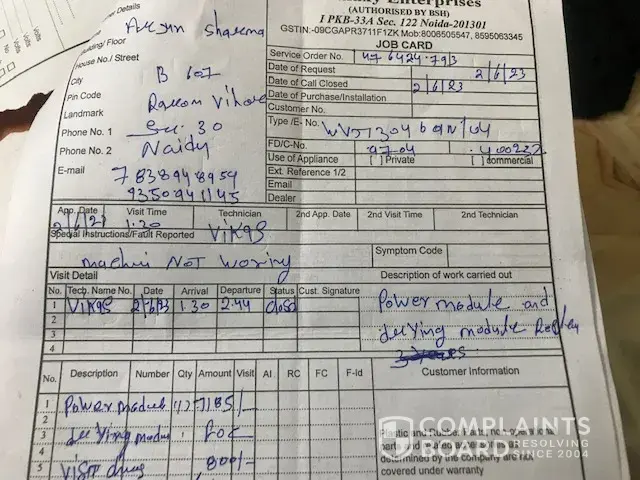 Enterprises
(AUTHORISED BY BSH)
I PKB-33A Sec. 122 Noida-201301
GSTIN:-09CGAPR3711F1ZK Mob:-8006505547, 8595063345
JOB CARD
Details
Arjun Sharma
Building/ Floor
House No./ Street
B 607
City
Pin Code
Landmark
Sec. 30
Phone No. 1
Naidy
Phone No. 2
E-mail
7838948959
9350941145
Service Order No. 476424793
Date of Request 2/6/23
Date of Call Closed 2/6/23
Date of Purchase/Installation
Customer No.
Type /E- No.
FD/C-No. 9704 400232
Use of Appliance [ ] Private [ ] commercial
Ext. Reference 1/2
Email
Dealer
App. Date Visit Time Technician 2nd App. Date 2nd Visit Time 2nd Technician
2/6/23 1:30 Vikas
Special Instructions/Fault Reported
machin Not woring
Symptom Code
Visit Detail Description of work carried out
No. Tech. Name No. Date Arrival Departure Status Cust. Signature
1 Vikas 2/6/3 1.30 2.44 closd
2
3
4
Power module and
module
No. Description Number Qty Amount Visit AI RC FC F-Id Customer Information
1 Power modul 1 7185/-
2
3 modu 1 FOC
4
5 800/-
covered under warranty
determined by the company are not
COMPLAINTS
BOARD
RESOLVING
SINCE 2004